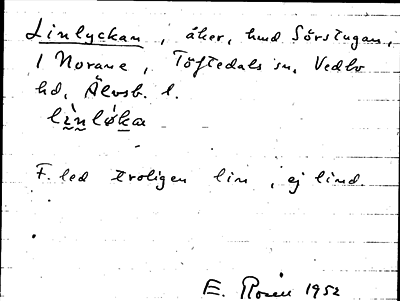 Linlyckan, åker, hmd Sörstugan,
1 Norane, Töftedals sn, Vedbo
hd, Älvsb. l.
lìnlø̀ka
F. led troligen lin, ej lind.
E. Rosén 1952